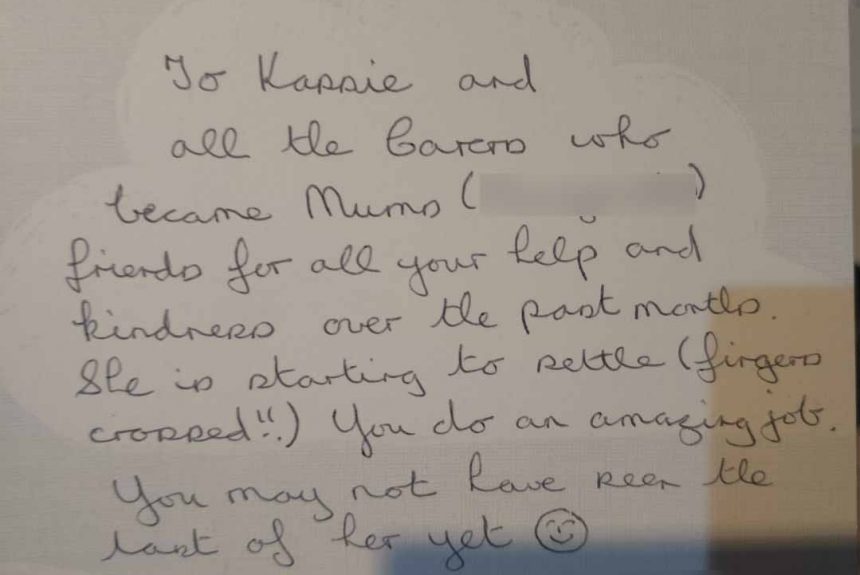 To Kassie and
all the Carers who
became Mums (          )
friends for all your help and
kindness over the past months.
She is starting to settle (fingers
crossed!!) You do an amazing job.
You may not have seen the
last of her yet ☺